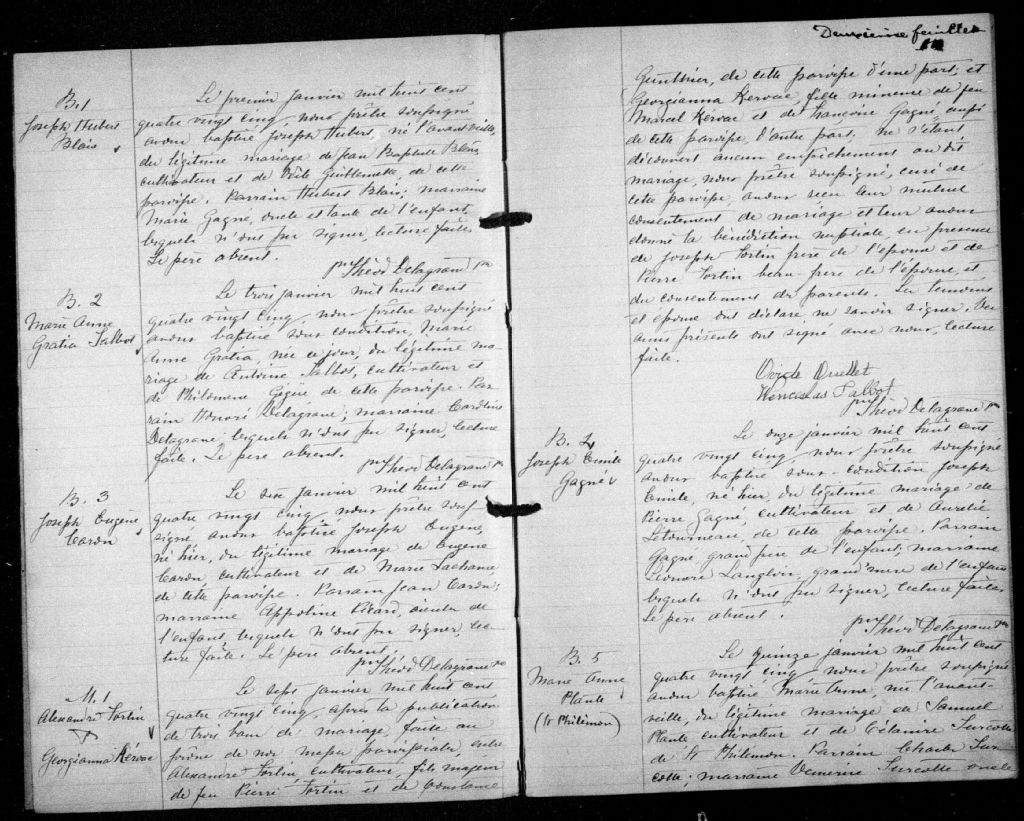 B. 1
Joseph Hubert
Blais
Le premier janvier mil huit cent
quatre vingt cinq, nous prêtre soussigné
avons baptisé Joseph Hubert, né l'avant veille,
du légitime mariage de Jean Baptiste Blais,
cultivateur et de Guillemette, de cette
paroisse. Parrain Hubert Blais; marraine
Marie Gagné, oncle et tante de l'enfant,
lesquels n'ont pu signer, lecture faite.
Le père absent.
ptre Théod Delagrave ptre
B. 2
Marie Anne
Gratia Talbot
Le trois janvier mil huit cent
quatre vingt cinq, nous prêtre soussigné
avons baptisé sous condition, Marie
Anne Gratia, née ce jour, du légitime ma-
riage de Antoine Talbot, cultivateur et
de Philomène de cette paroisse. Par-
rain Honoré Delagrave; marraine Caroline
Delagrave, lesquels n'ont pu signer, lecture
faite. Le père absent.
ptre Théod Delagrave ptre
B. 3
Joseph Eugène
Caron
Le six janvier mil huit cent
quatre vingt cinq, nous prêtre sous
signé, avons baptisé Joseph Eugène,
né hier, du légitime mariage de Eugène
Caron, cultivateur et de Marie Lachaine
de cette paroisse. Parrain Jean Caron;
marraine Appoline Picard, aieuls de
l'enfant, lesquels n'ont pu signer, lec-
ture faite. Le père absent.
ptre Théod Delagrave ptre
M. 1
Alexandre Fortin
&
Georgianna Kérvac
Le sept janvier mil huit cent
quatre vingt cinq, après la publication
de trois bans de mariage, faite au
prône de nos messes paroissiales, entre
Alexandre Fortin, cultivateur, fils majeur
de feu Pierre Fortin et de Constance
Deuxième feuillet
Gauthier, de cette paroisse d'une part; et
Georgianna Kervac fille mineure de feu
Marcel Kervac et de Françoise Gagné, aussi
de cette paroisse, d'autre part. Ne s'étant
découvert aucun empêchement au dit
mariage, nous prêtre soussigné, curé de
cette paroisse, avons reçu leur mutuel
consentement de mariage et leur avons
donné la bénédiction nuptiale, en présence
de Joseph Fortin frère de l'époux et de
Pierre Fortin beau-frère de l'épouse, et
du consentement des parents. Les témoins
et époux ont déclaré ne savoir signer.
amis présents ont signé avec nous, lecture
faite.
Ovide Ouellet
Wenceslas Talbot
ptre Théod Delagrave ptre
B. 4
Joseph Emile
Gagné
Le onze janvier mil huit cent
quatre vingt cinq nous prêtre soussigné
avons baptisé sous-condition Joseph
Emile, né hier, du légitime mariage de
Pierre Gagné cultivateur et de Aurélie
Létourneau, de cette paroisse. Parrain
Gagné, grand père de l'enfant; marraine
Léonore Langlois, grand'mère de l'enfant
lesquels n'ont pu signer, lecture faite.
Le père absent.
ptre Théod Delagrave ptre
B. 5
Marie Anne
Plante
(St Philémon)
Le quinze janvier mil huit cent
quatre vingt cinq, nous prêtre soussigné
avons baptisé Marie Anne, née l'avant-
veille, du légitime mariage de Samuel
Plante cultivateur et de Célanire Turcotte
de St Philémon. Parrain Charles Tur-
cotte; marraine Démérise Turcotte oncle